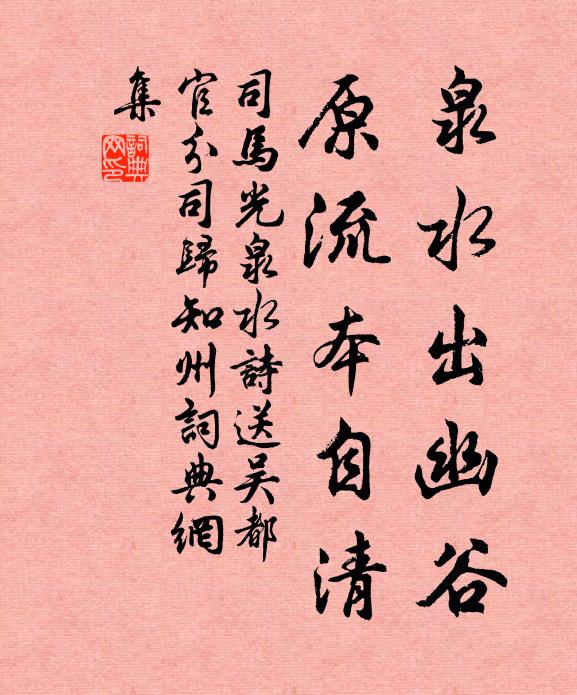 泉水出幽谷
原流本自清
司馬光泉水詩送吴都
官分司歸知州詞典網
集
詞典
网印